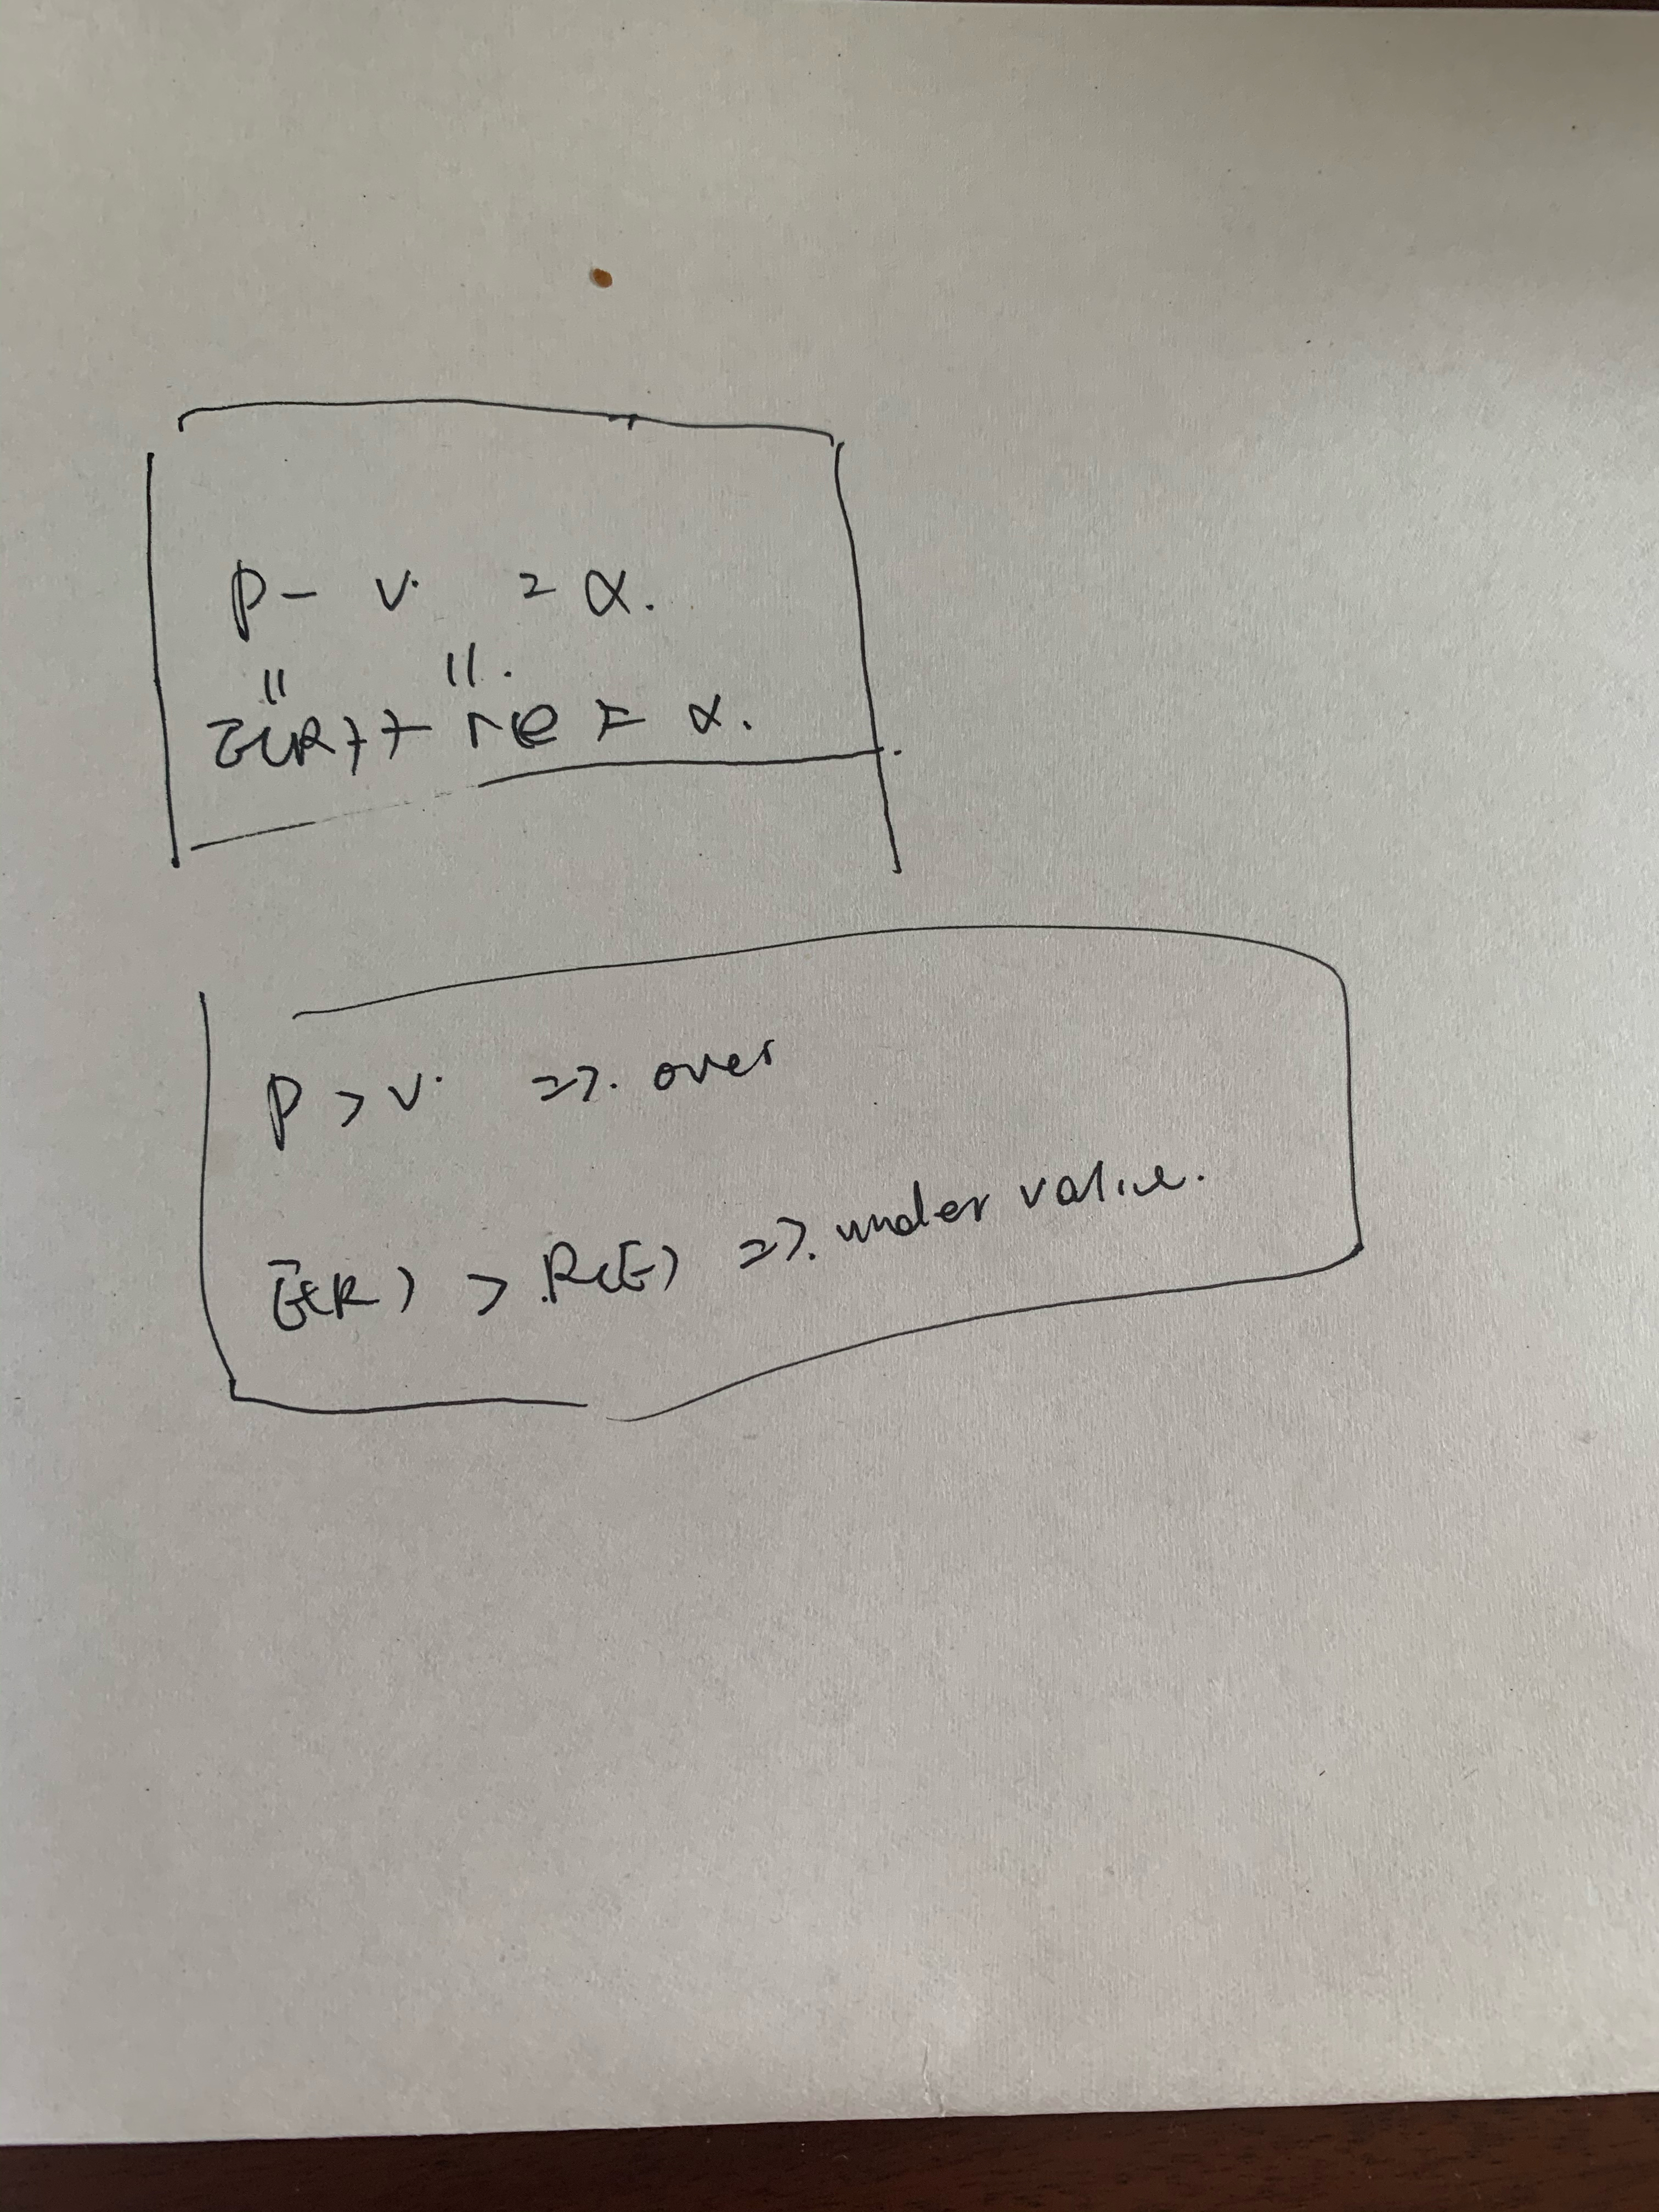 P - V. = α.
" ".
E(R) + re = α.
P > V. => over
E(R) > R(E) => under value.